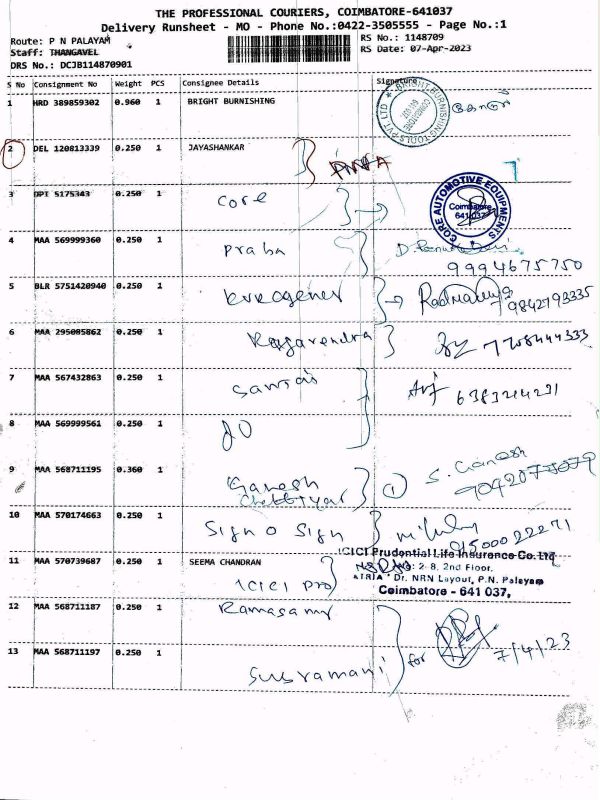 THE PROFESSIONAL COURIERS, COIMBATORE-641037
Delivery Runsheet - MO - Phone No.:0422-3505555 - Page No.:1
Route: P N PALAYAM
RS No.: 1148709
Staff: THANGAVEL
RS Date: 07-Apr-2023
DRS No.: DCJB114870901
S No Consignment No Weight PCS Consignee Details Signature
1 HRD 389859302 0.960 1 BRIGHT BURNISHING
BRIGHT BURNISHING TOOLS PVT. LTD
COIMBATORE
2 DEL 120813339 0.250 1 JAYASHANKAR
3 DPT 5175343 0.250 1 Core
CORE AUTOMOTIVE EQUIPMENTS
Coimbatore
641 037
4 MAA 569999360 0.250 1 Praba
9994675750
5 BLR 5751420940 0.250 1
9842793335
6 MAA 295085862 0.250 1
7 MAA 567432863 0.250 1
8 MAA 569999561 0.250 1
9 MAA 568711195 0.360 1 Ganesh Chettiyar
S. Ganesh
10 MAA 570174663 0.250 1 Sign O Sign
11 MAA 570739687 0.250 1 SEEMA CHANDRAN
ICICI Pro
ICICI Prudential Life Insurance Co. Ltd
2-8, 2nd Floor.
Dr. NRN Layout, P.N. Palayam
Coimbatore - 641 037,
12 MAA 568711187 0.250 1 Ramasamy
13 MAA 568711197 0.250 1 Subramani
for
7/4/23